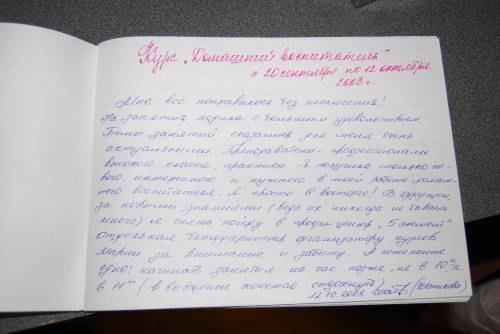 Курс „Домашний воспитатель“
с 20 сентября по 12 октября
2008 г.
Мне всё понравилось без исключения!
На занятия ходила с большим удовольствием.
Темы занятий оказались для меня очень
актуальными. Преподаватели-профессионалы
высокого класса, практики. Я получила столько но-
вого, интересного и нужного в моей работе домаш-
него воспитателя. Я просто в восторге! В будущем,
за новыми знаниями (ведь их никогда не бывает
много) я снова пойду в центр „5 элемент“
Отдельная благодарность организатору курсов
Марии за внимание и заботу. А пожелание
одно: начинать занятия на час позже, не в 10.00, а
в 11.00 (в выходные хочется отдохнуть)
12.10.2008